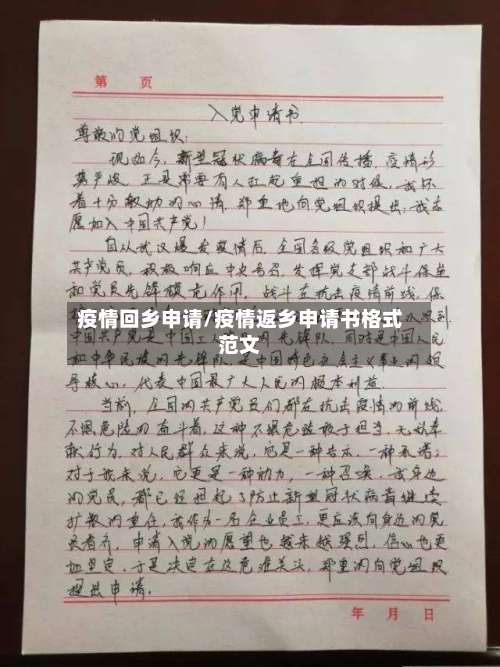 第 页
入党申请书
尊敬的党组织:
现如今,新型冠状病毒在全国传播,疫情形
势严峻,正是需要有人扛起重担的时候,我怀
着十分激动的心情,郑重地向党组织提出:我志
愿加入中国共产党!
自从武汉爆发疫情后,全国各级党组织和广大
共产党员,积极响应中央号召,发挥党支部战斗堡垒
和党员先锋模范作用,战斗在抗击疫情前线,保
疫情回乡申请/疫情返乡申请书格式
范文
中国共产党是中国工人 的先锋队,同时是中国人民
和中华民族的先锋队,是中国特色社会主义事业的领
导核心,代表中国最广大人民的根本利益.
当前,全国的共产党员们都在抗击疫情的前线
不惧危险的奋斗着,这种不惧危险敢于担当,无私奉
献行为,对人民群众来说,它是一种启示,一种希望;
对于我来说,它更是一种动力,一种召唤,我身边
的党员,都已经担起了防止新型冠状病毒继续
扩散的重任,我作为一名企业员工,更应该向身边的党
员看齐,申请入党的愿望也越来越强烈,信心也更
加坚定,于是决定在这危难关头,郑重的向党组织
提出申请.
年 月 日